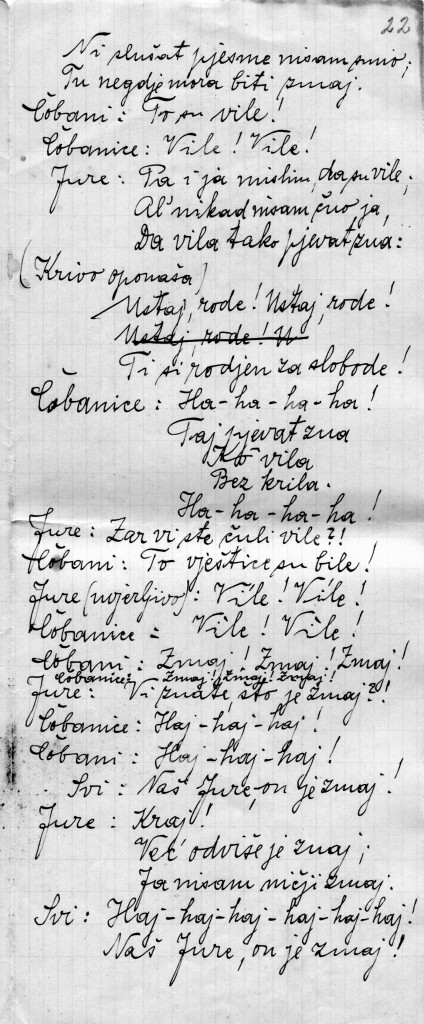 22
Ni slušat pjesme nisam smio;
Tu negdje mora biti zmaj.
Čobani: To su vile!
Čobanice: Vile! Vile!
Jure: Pa i ja mislim, da su vile;
Al' nikad nisam čuo ja,
Da vila tako pjevat zna:
(Krivo oponaša)
Ustaj, rode! Ustaj, rode!
Ustaj, rode! U
Ti si rodjen za slobode!
Čobanice: Ha-ha-ha-ha!
Taj pjevat zna
Kô vila
Bez krila.
Ha-ha-ha-ha!
Jure: Zar vi ste čuli vile?!
Čobani: To vještice su bile!
Jure (uvjerljivo): Vile! Vile!
Čobanice: Vile! Vile!
Čobani: Zmaj! Zmaj! Zmaj!
Čobanice: Zmaj! Zmaj! Zmaj!
Jure: Vi znate, što je zmaj?!
Čobanice: Haj-haj-haj!
Čobani: Haj-haj-haj!
Svi: Naš Jure, on je zmaj!
Jure: Kraj!
Već odviše je znaj;
Ja nisam ničji zmaj.
Svi: Haj-haj-haj-haj-haj-haj!
Naš Jure, on je zmaj!